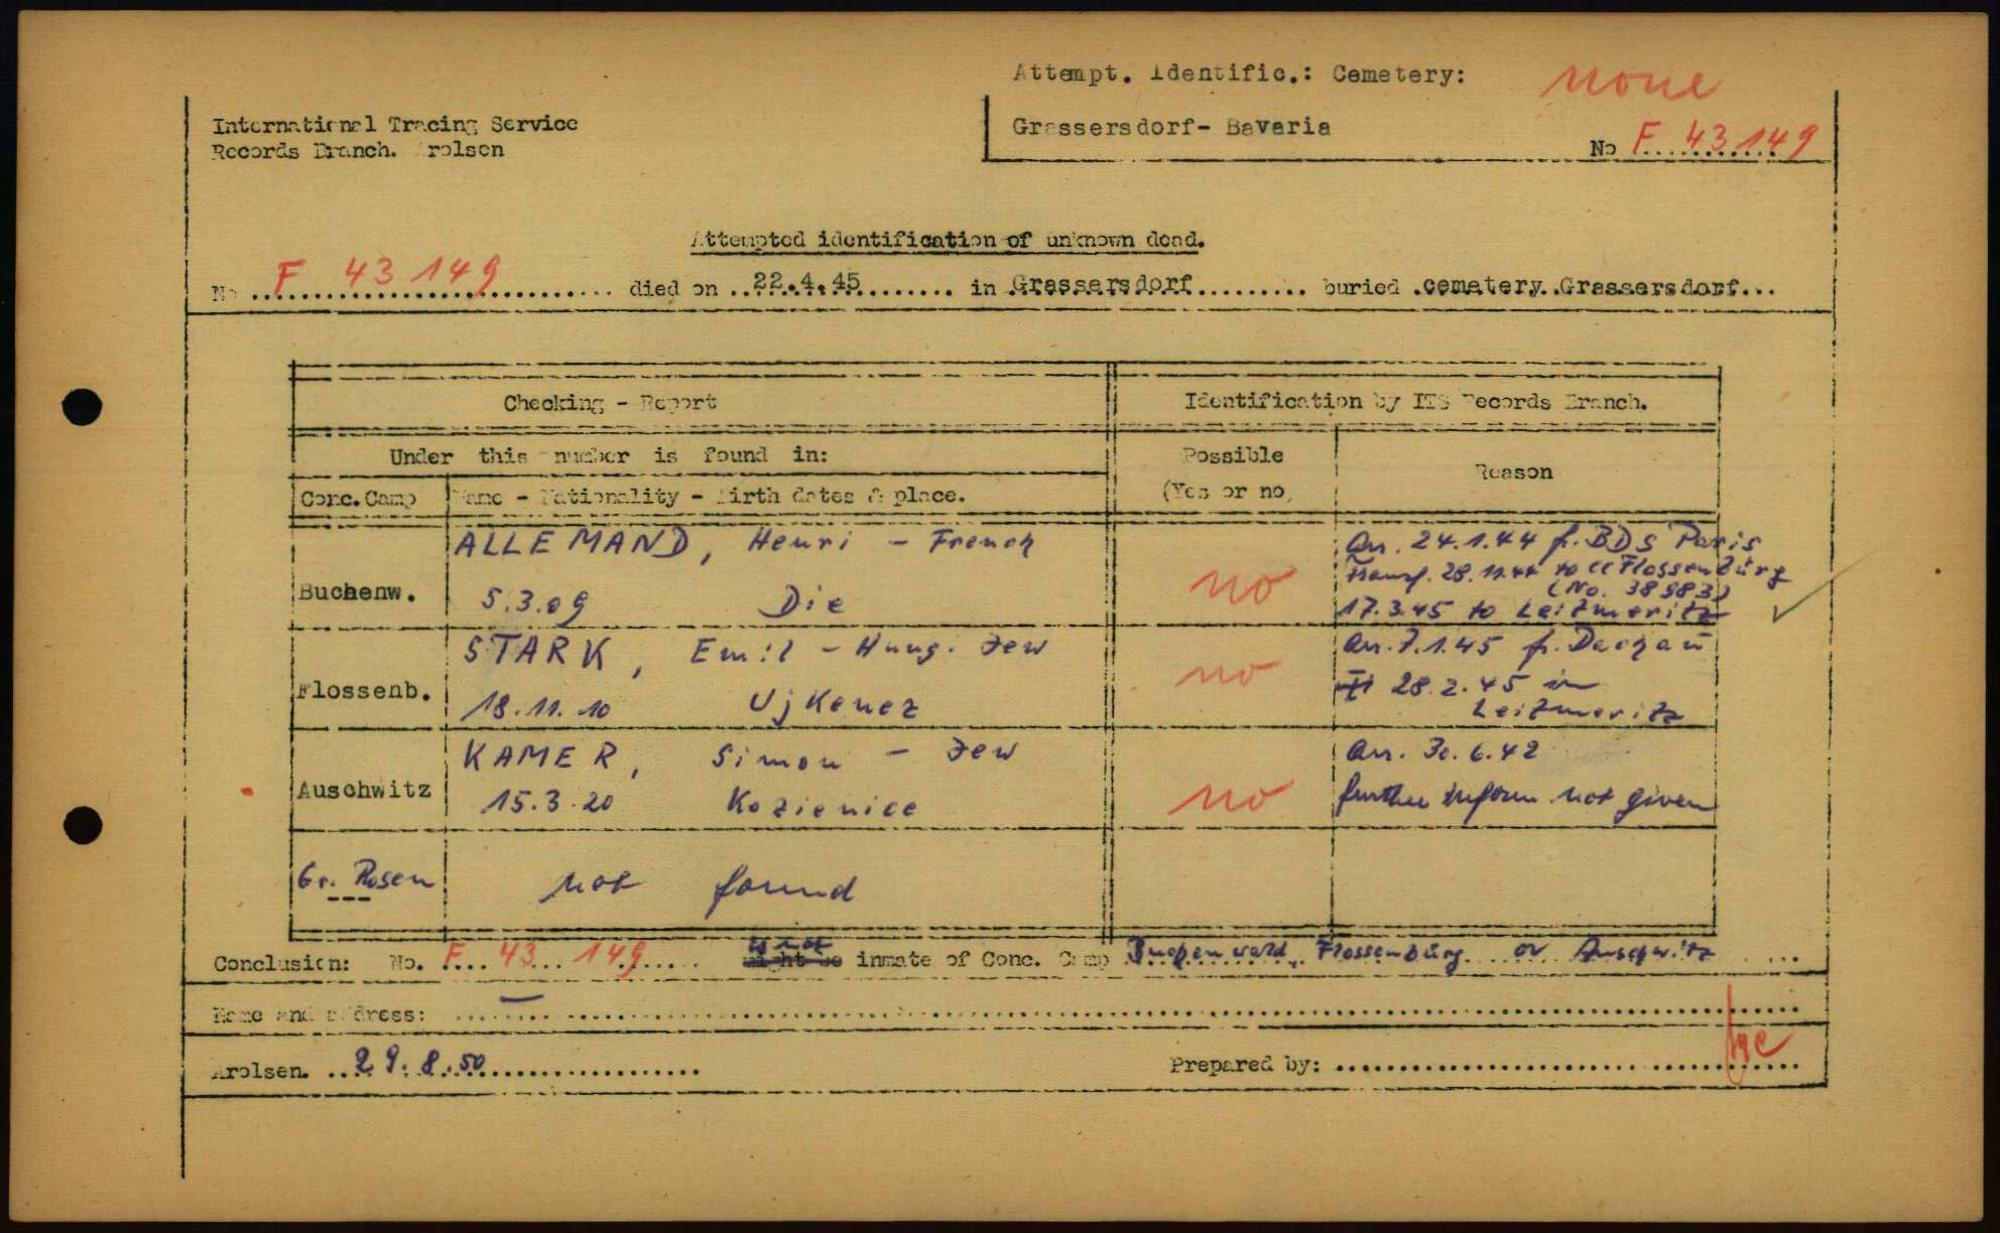 Attempt. Identific.: Cemetery: none
International Tracing Service
Records Branch. Arolsen
Grassersdorf- Bavaria
No F 43 149
Attempted identification of unknown dead.
No F 43 149 died on 22.4.45 in Grassersdorf buried cemetery Grassersdorf
Checking - Report
Identification by ITS Records Branch.
Under this number is found in:
Possible
(Yes or no)
Reason
Conc. Camp
Name - Nationality - Birth dates & place.
Buchenw.
ALLEMAND, Henri - French
5.3.09 Die
no
Arr. 24.1.44 f. BDS Paris
Transf. 28.11.44 to CC Flossenbürg
(No. 38983)
17.3.45 to Leitmeritz
Flossenb.
STARK, Emil - Hung. Jew
18.11.10 Ujkenez
no
Arr. 7.1.45 f. Dachau
28.2.45 in
Leitmeritz
Auschwitz
KAMER, Simon - Jew
15.3.20 Kozienice
no
Arr. 30.6.42
further inform not given
Gr. Rosen
not found
Conclusion: No. F 43 149 is not might be inmate of Conc. Camp Buchenwald, Flossenbürg or Auschwitz
Name and address: -
Arolsen. 29.8.50
Prepared by: